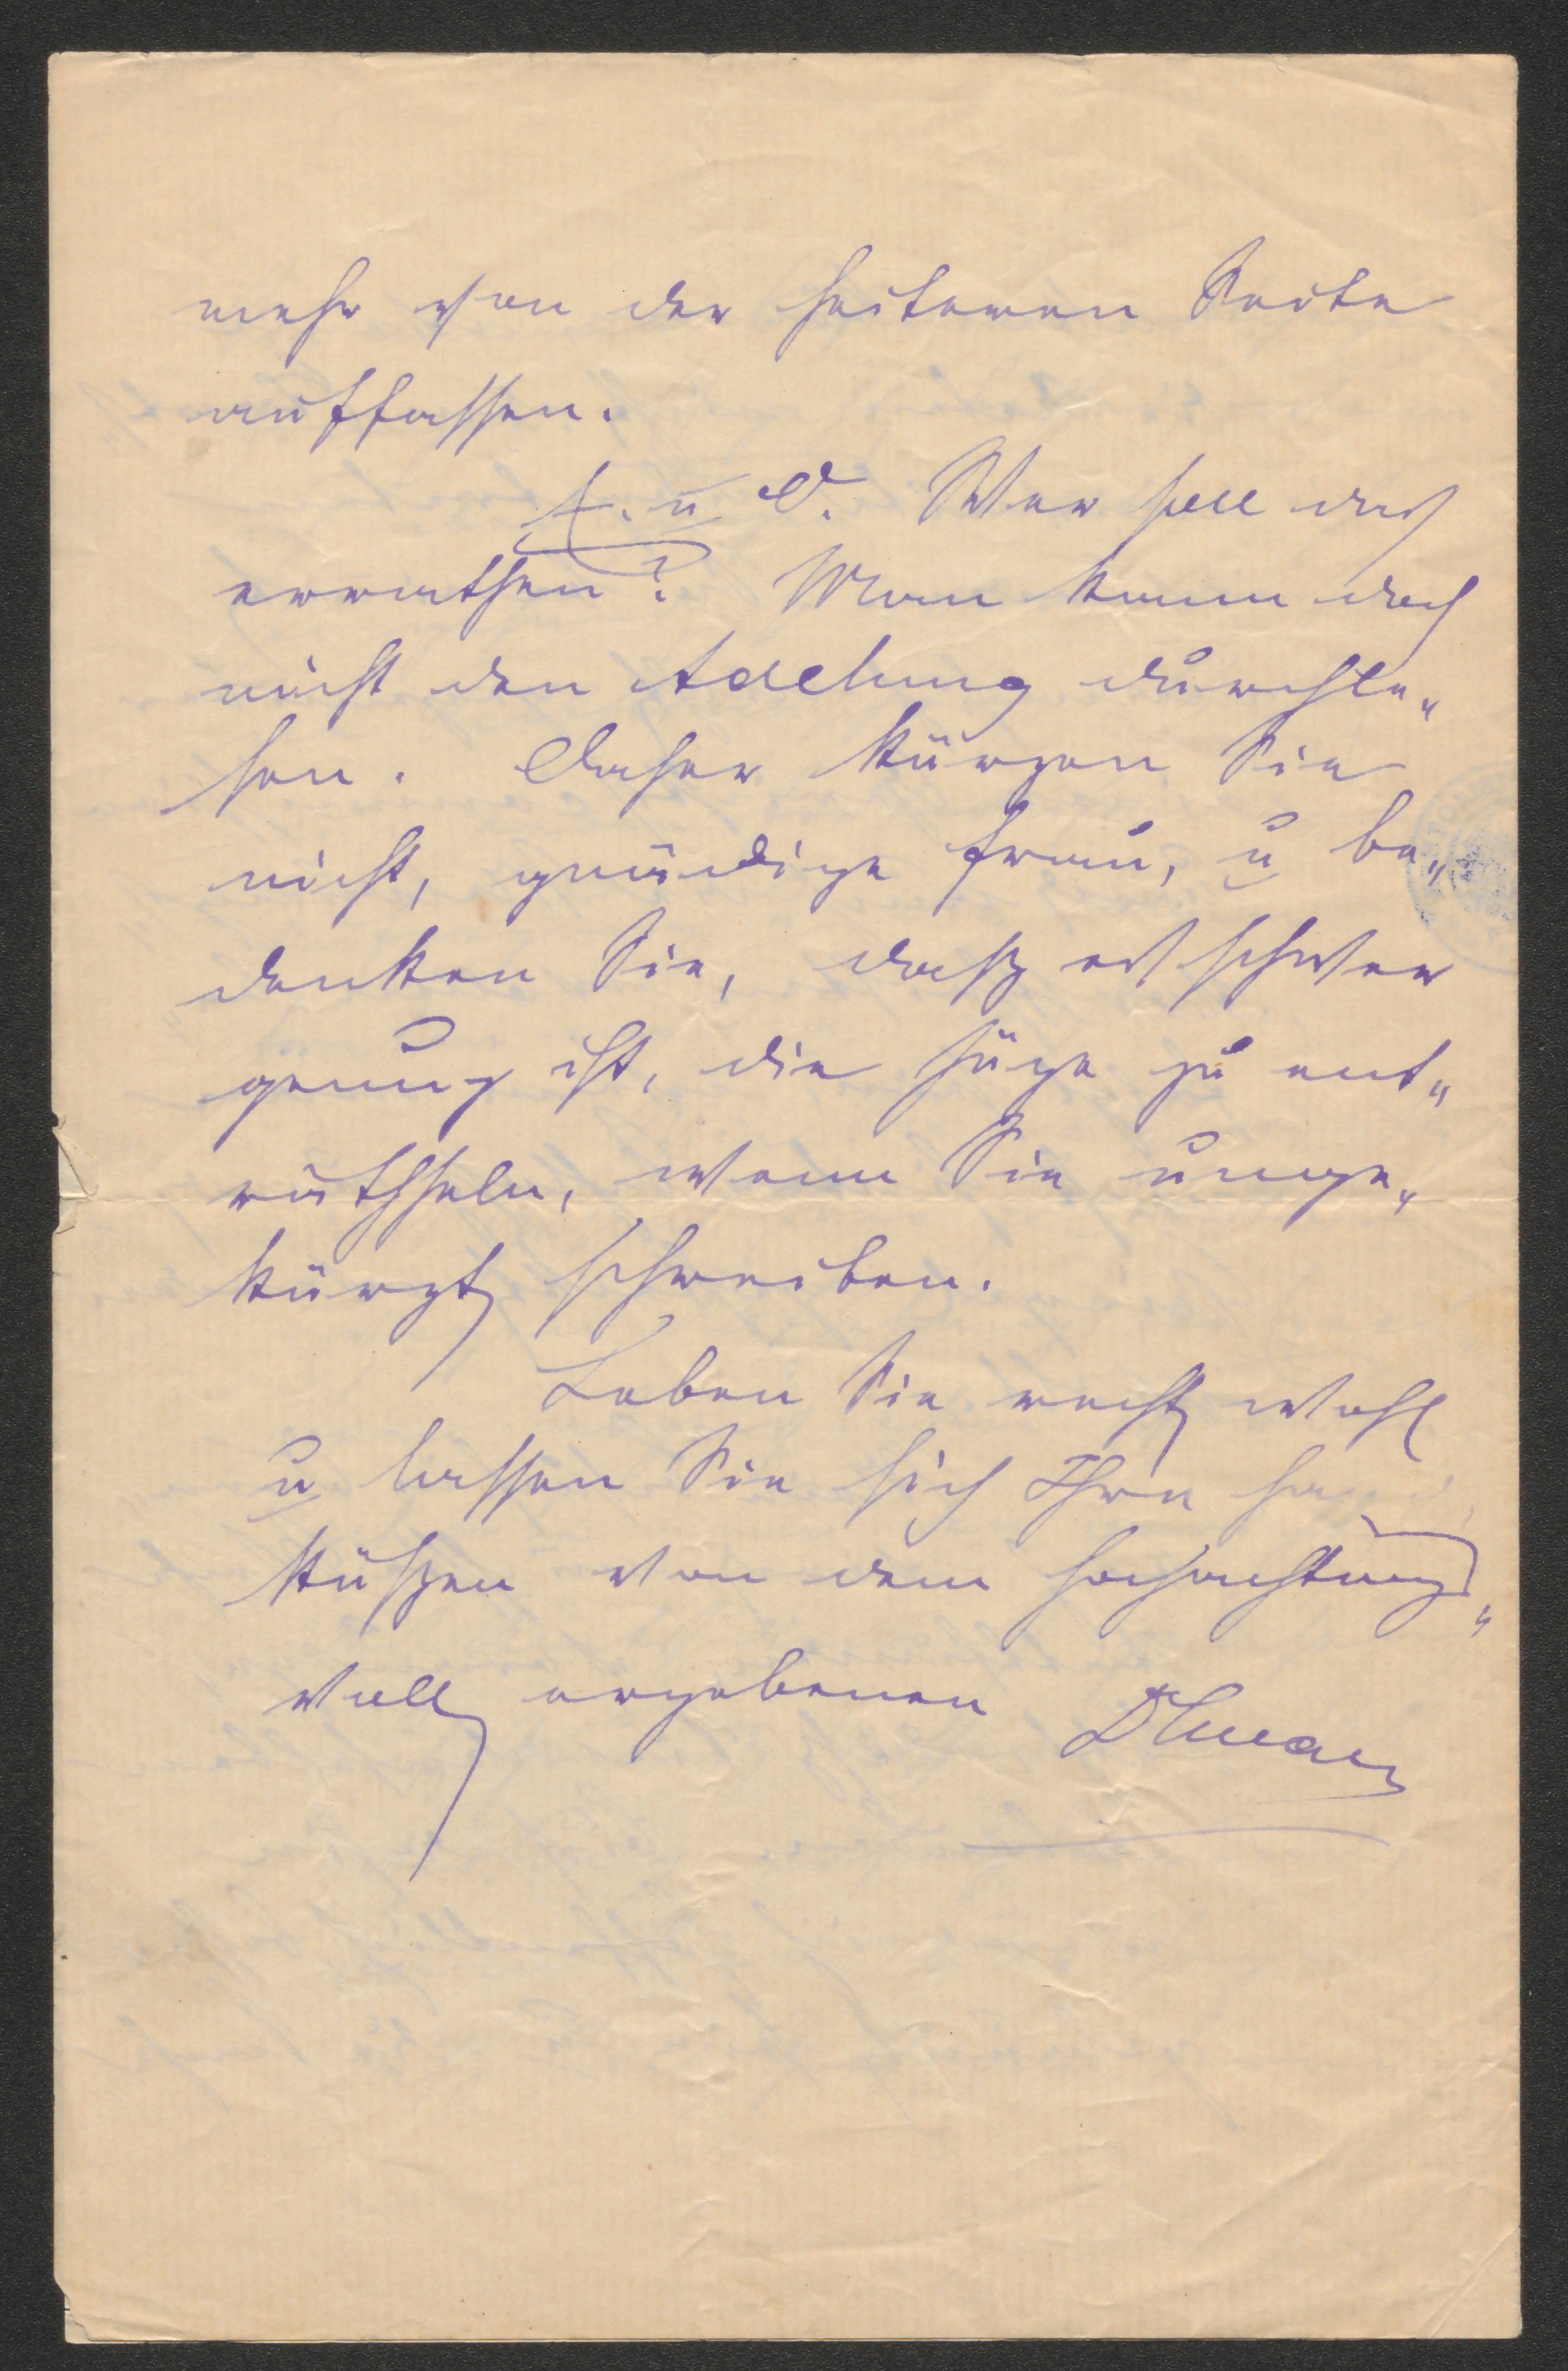 mehr von der heiteren Seite
auffassen.
A. u D. Wer soll das
errathen? Man kann doch
nicht den Adelung durchle„
sen. Daher kürzen Sie
nicht, gnädige Frau, u be„
denken Sie, dasz es schwer
genug ist, die Züge zu ent„
räthseln, wenn Sie unge„
kürzt schreiben.
Leben Sie recht wohl
u lassen Sie sich Ihre
küszen von dem hochachtungs„
voll ergebenen